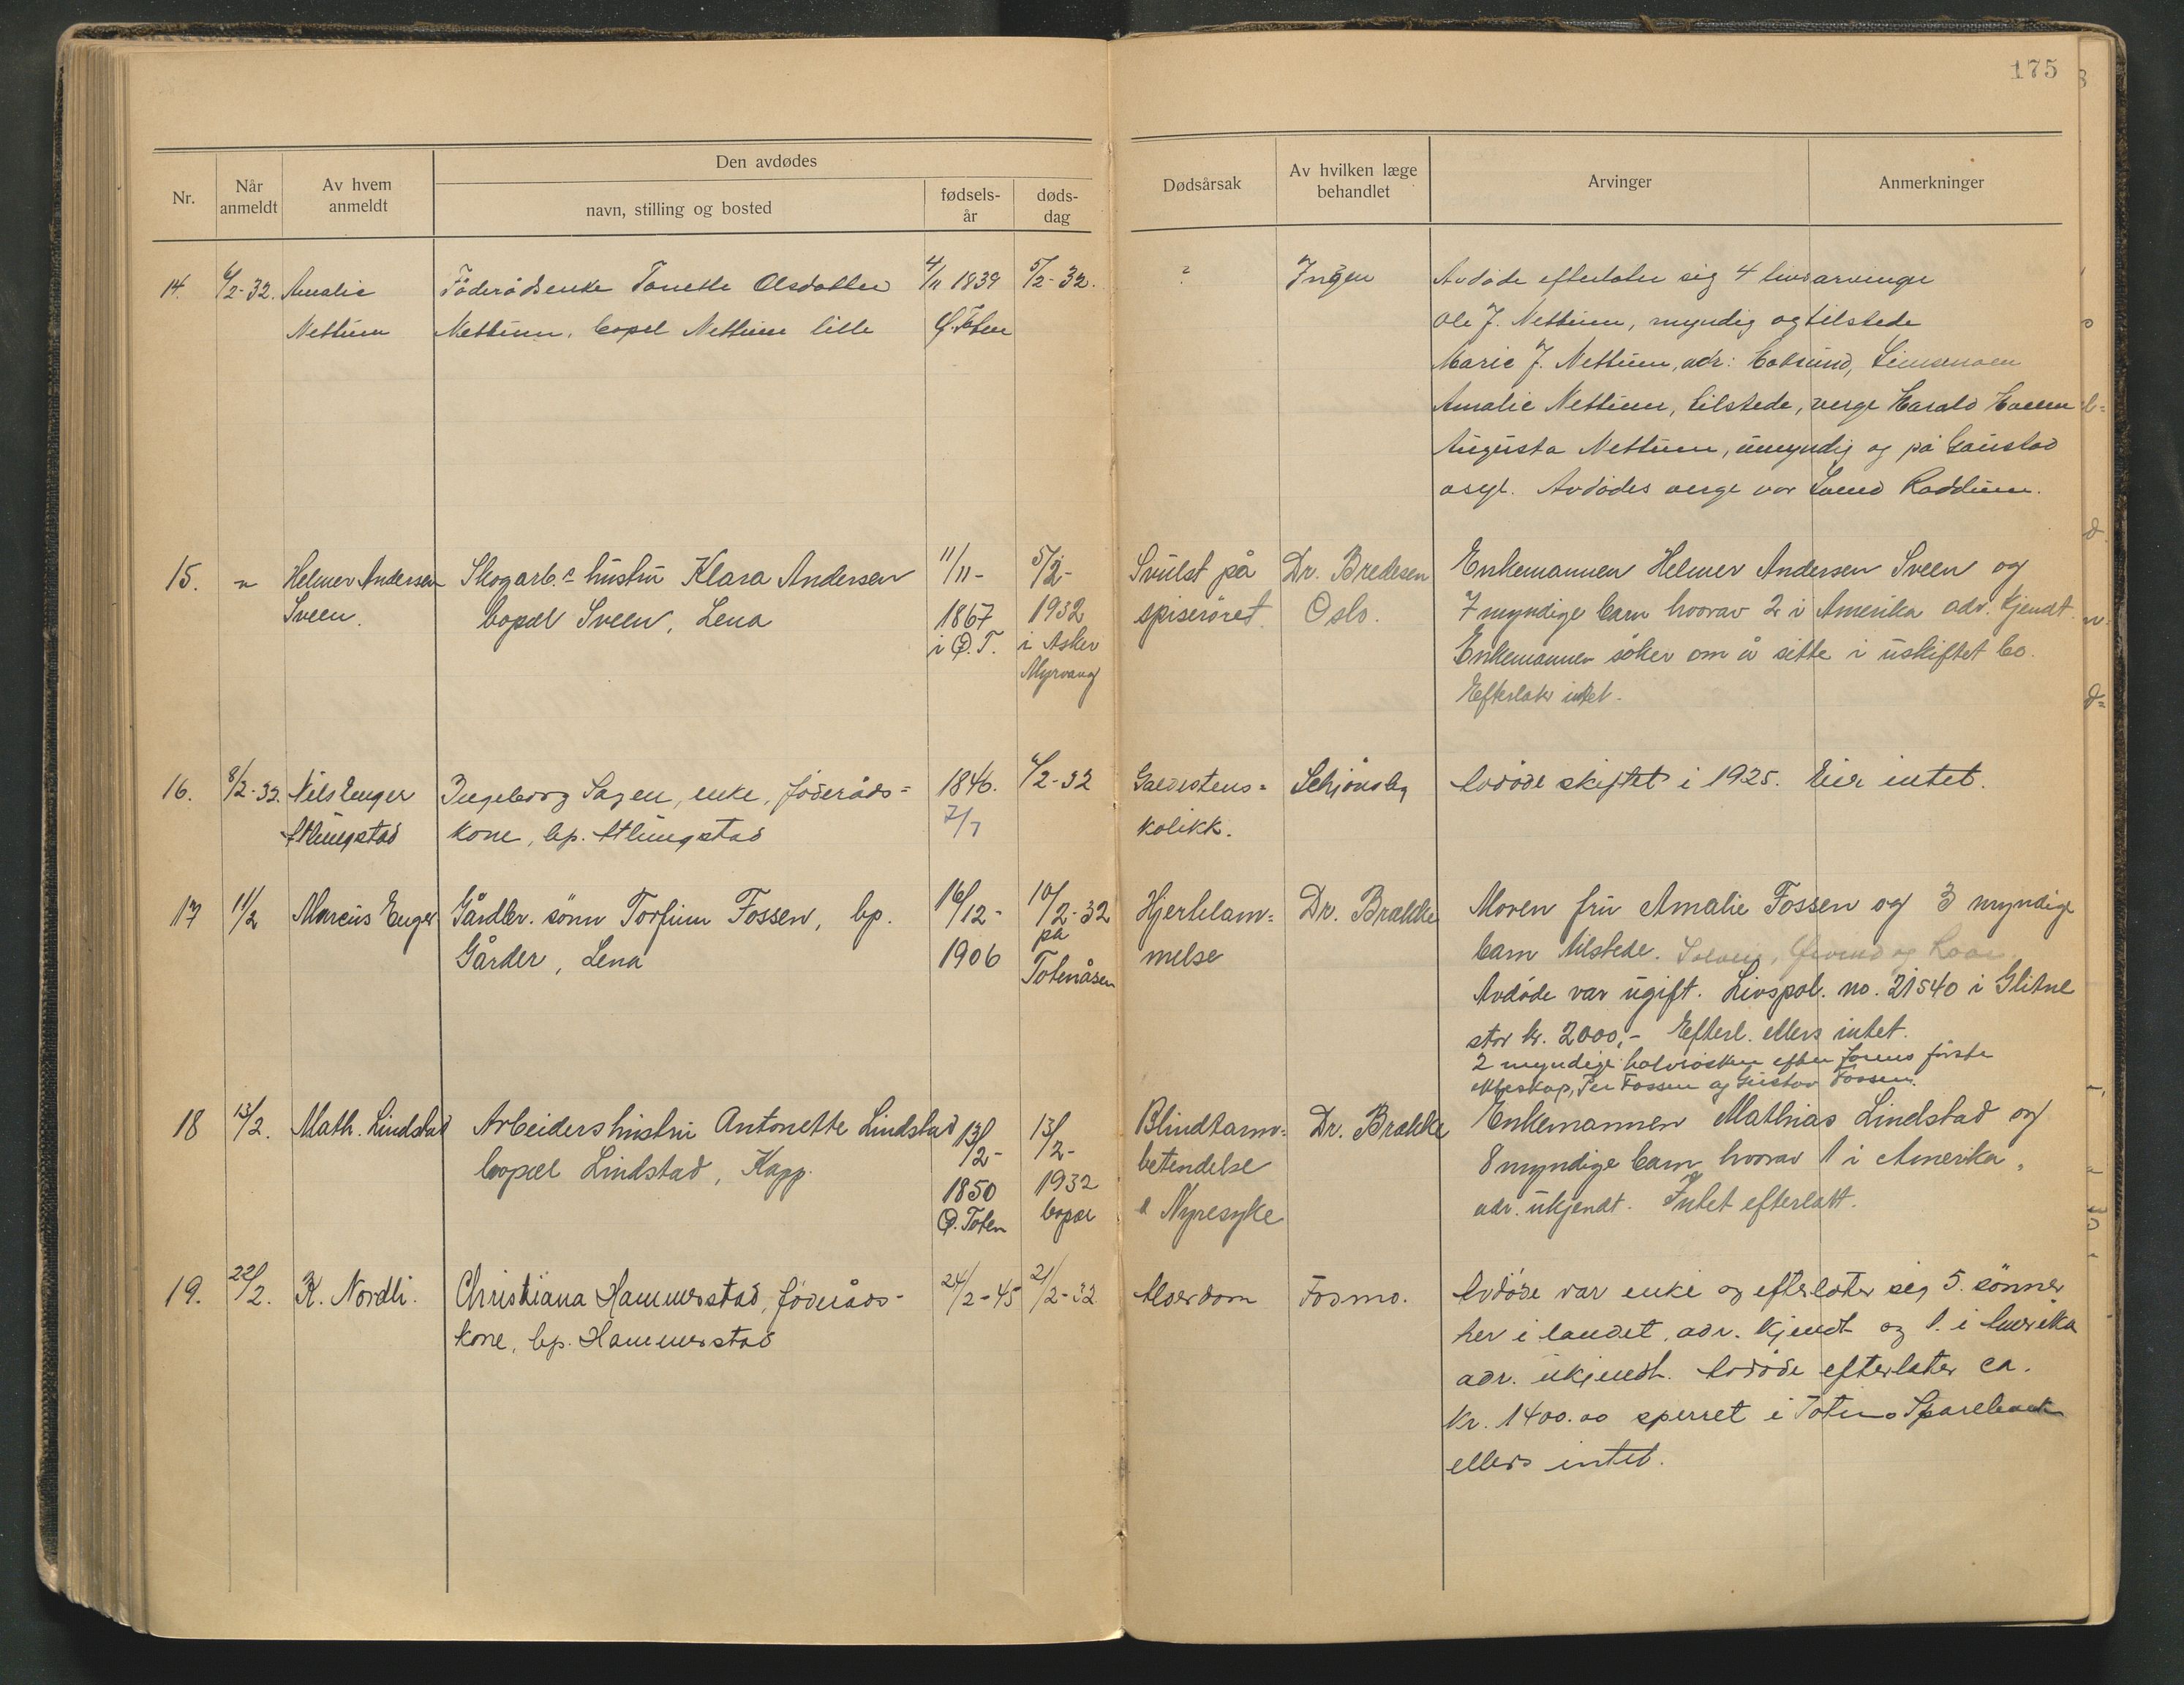 175
Den avdødes
Nr.
Når anmeldt
Av hvem anmeldt
navn, stilling og bosted
fødsels-år
døds-dag
Dødsårsak
Av hvilken læge behandlet
Arvinger
Anmerkninger
14. 6/2-32. Amalie Föderådsenke Tonette Olsdatter 4/11 1839 5/2-32. ? Ingen Avdöde efterlater sig 4 livsarvinger
Nettum Nettum, bopel Nettum lille Ø. Toten Ole J. Nettum, myndig og tilstede
Marie J. Nettum, adr: Hoksund,
Amalie Nettum, tilstede, verge Harald
Augusta Nettum, umyndig og på Gaustad
asyl. Avdödes verge var Svend Raddum.
15. " Helmer Andersen Skogarb.s hustru Klara Andersen 11/11- 5/2- Svulst på Dr. Bredesen Enkemannen Helmer Andersen Sveen og
Sveen. bopæl Sveen, Lena 1867 1932 spiseröret. Oslo. 7 myndige barn hvorav 2 i Amerika adr. kjendt.
i Ø.T. i Asker Enkemannen söker om å sitte i uskiftet bo.
Myrvang Efterlater intet.
16. 8/2-32. Nils Enger Ingeborg Sagen, enke, föderåds= 1846. 6/2-32 Galdestens= Schjønsby Avdöde skiftet i 1925. Eier intet.
Alungstad kone, bp. Alungstad 7/7 kolikk.
17 11/2 Marcus Enger Gårdbr. sönn Torfinn Fossen, bp. 16/12- 10/2-32 Hjertelam= Dr. Brække Moren fru Amalie Fossen og 3 myndige
Gårder, Lena 1906 på Totenåsen melse barn tilstede. Solveig, Øivind og Roar.
Avdöde var ugift. Livspol. no. 21540 i Glitne
stor kr. 2000,- Efterl. ellers intet.
2 myndige halvsösken efter farens förste
ekteskap, Per Fossen og Gustav Fossen.
18 13/2. Math. Lindstad Arbeidershustru Antonette Lindstad 13/2- 13/2- Blindtarm= Dr. Brække Enkemannen Mathias Lindstad og
bopæl Lindstad, Kapp. 1850 1932 betendelse 8 myndige barn hvorav 1 i Amerika,
Ø. Toten bopæl & Nyresyke adr. ukjendt. Intet efterlatt.
19. 22/2. K. Nordli. Christiana Hammerstad, föderåds- 24/2-45 21/2-32 Alderdom Fosmo. Avdöde var enke og efterlater sig 5. sönner
kone, bp. Hammerstad her i landet, adr. kjendt og 1. i Amerika
adr. ukjendt. Avdöde efterlater ca.
kr. 1400.00 sperret i Totens Sparebank
ellers intet.